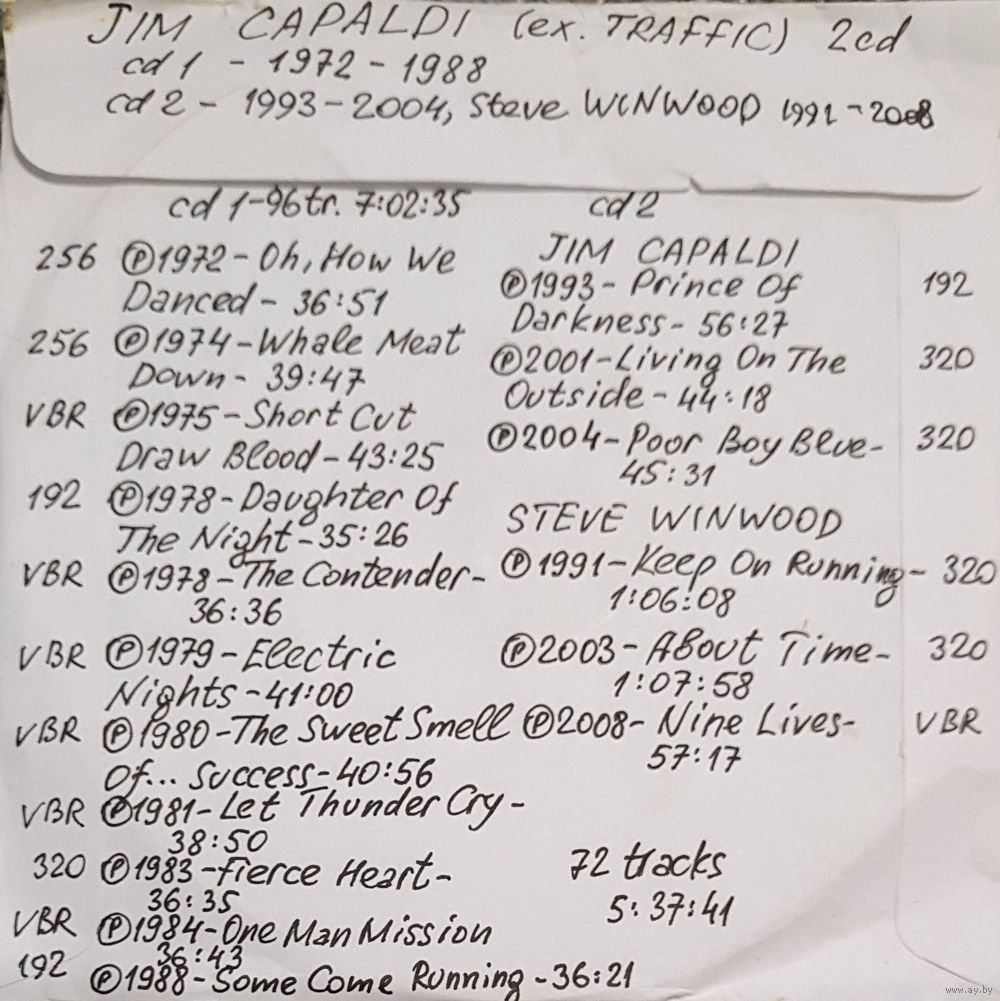 JIM CAPALDI (ex. TRAFFIC) 2cd
cd 1 - 1972 - 1988
cd 2 - 1993 - 2004, Steve WINWOOD 1991 - 2008
cd 1-96tr. 7:02:35
256 ℗1972 - Oh, How We
Danced - 36:51
256 ℗1974 - Whale Meat
Down - 39:47
VBR ℗1975 - Short Cut
Draw Blood - 43:25
192 ℗1978 - Daughter Of
The Night - 35:26
VBR ℗1978 - The Contender -
36:36
VBR ℗1979 - Electric
Nights - 41:00
VBR ℗1980 - The Sweet Smell
Of... Success - 40:56
VBR ℗1981 - Let Thunder Cry -
38:50
320 ℗1983 - Fierce Heart -
36:35
VBR ℗1984 - One Man Mission
36:43
192 ℗1988 - Some Come Running - 36:21
cd 2
JIM CAPALDI
℗1993 - Prince Of 192
Darkness - 56:27
℗2001 - Living On The 320
Outside - 44:18
℗2004 - Poor Boy Blue - 320
45:31
STEVE WINWOOD
℗1991 - Keep On Running - 320
1:06:08
℗2003 - About Time - 320
1:07:58
℗2008 - Nine Lives - VBR
57:17
72 tracks
5:37:41
www.ay.by